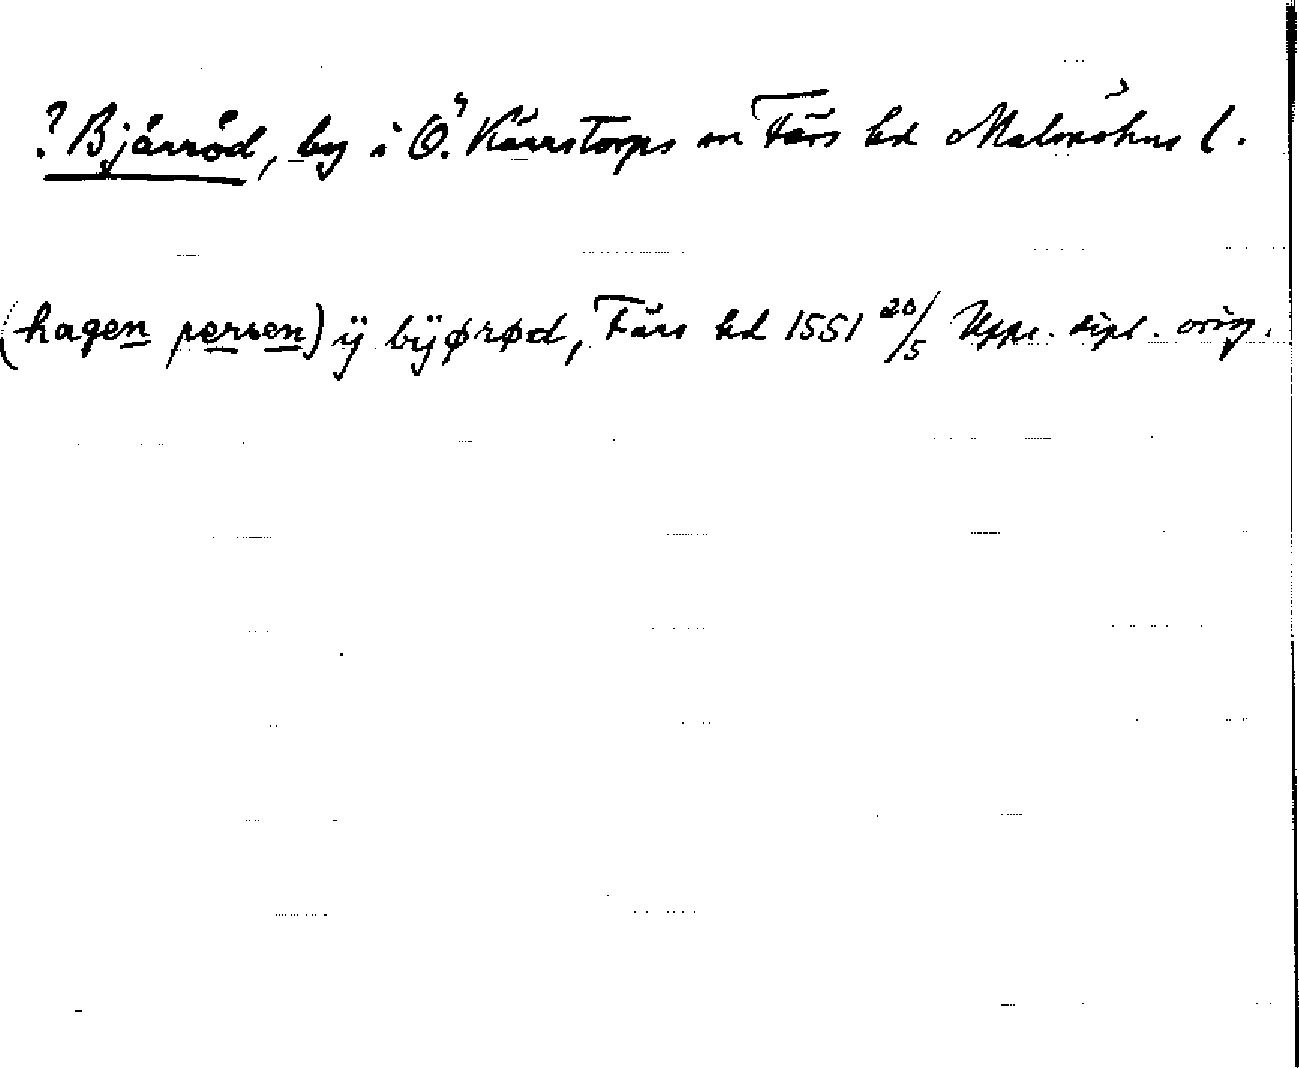 ? Bjärröd, by i Ö. Kärrstorps sn Färs hd Malmöhus l.
(hagen persen) ÿ bÿørød, Färs hd 1551 20/5 Upps. dipl. orig.